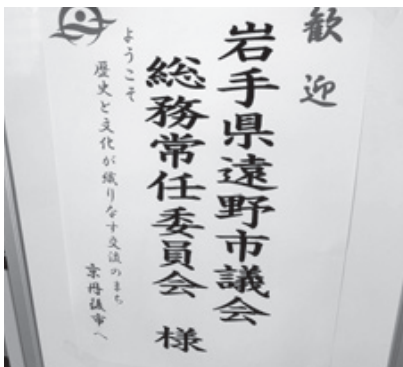 歓迎
岩手県遠野市議会
総務常任委員会 様
ようこそ
歴史と文化が織りなす交流のまち
京丹後市へ